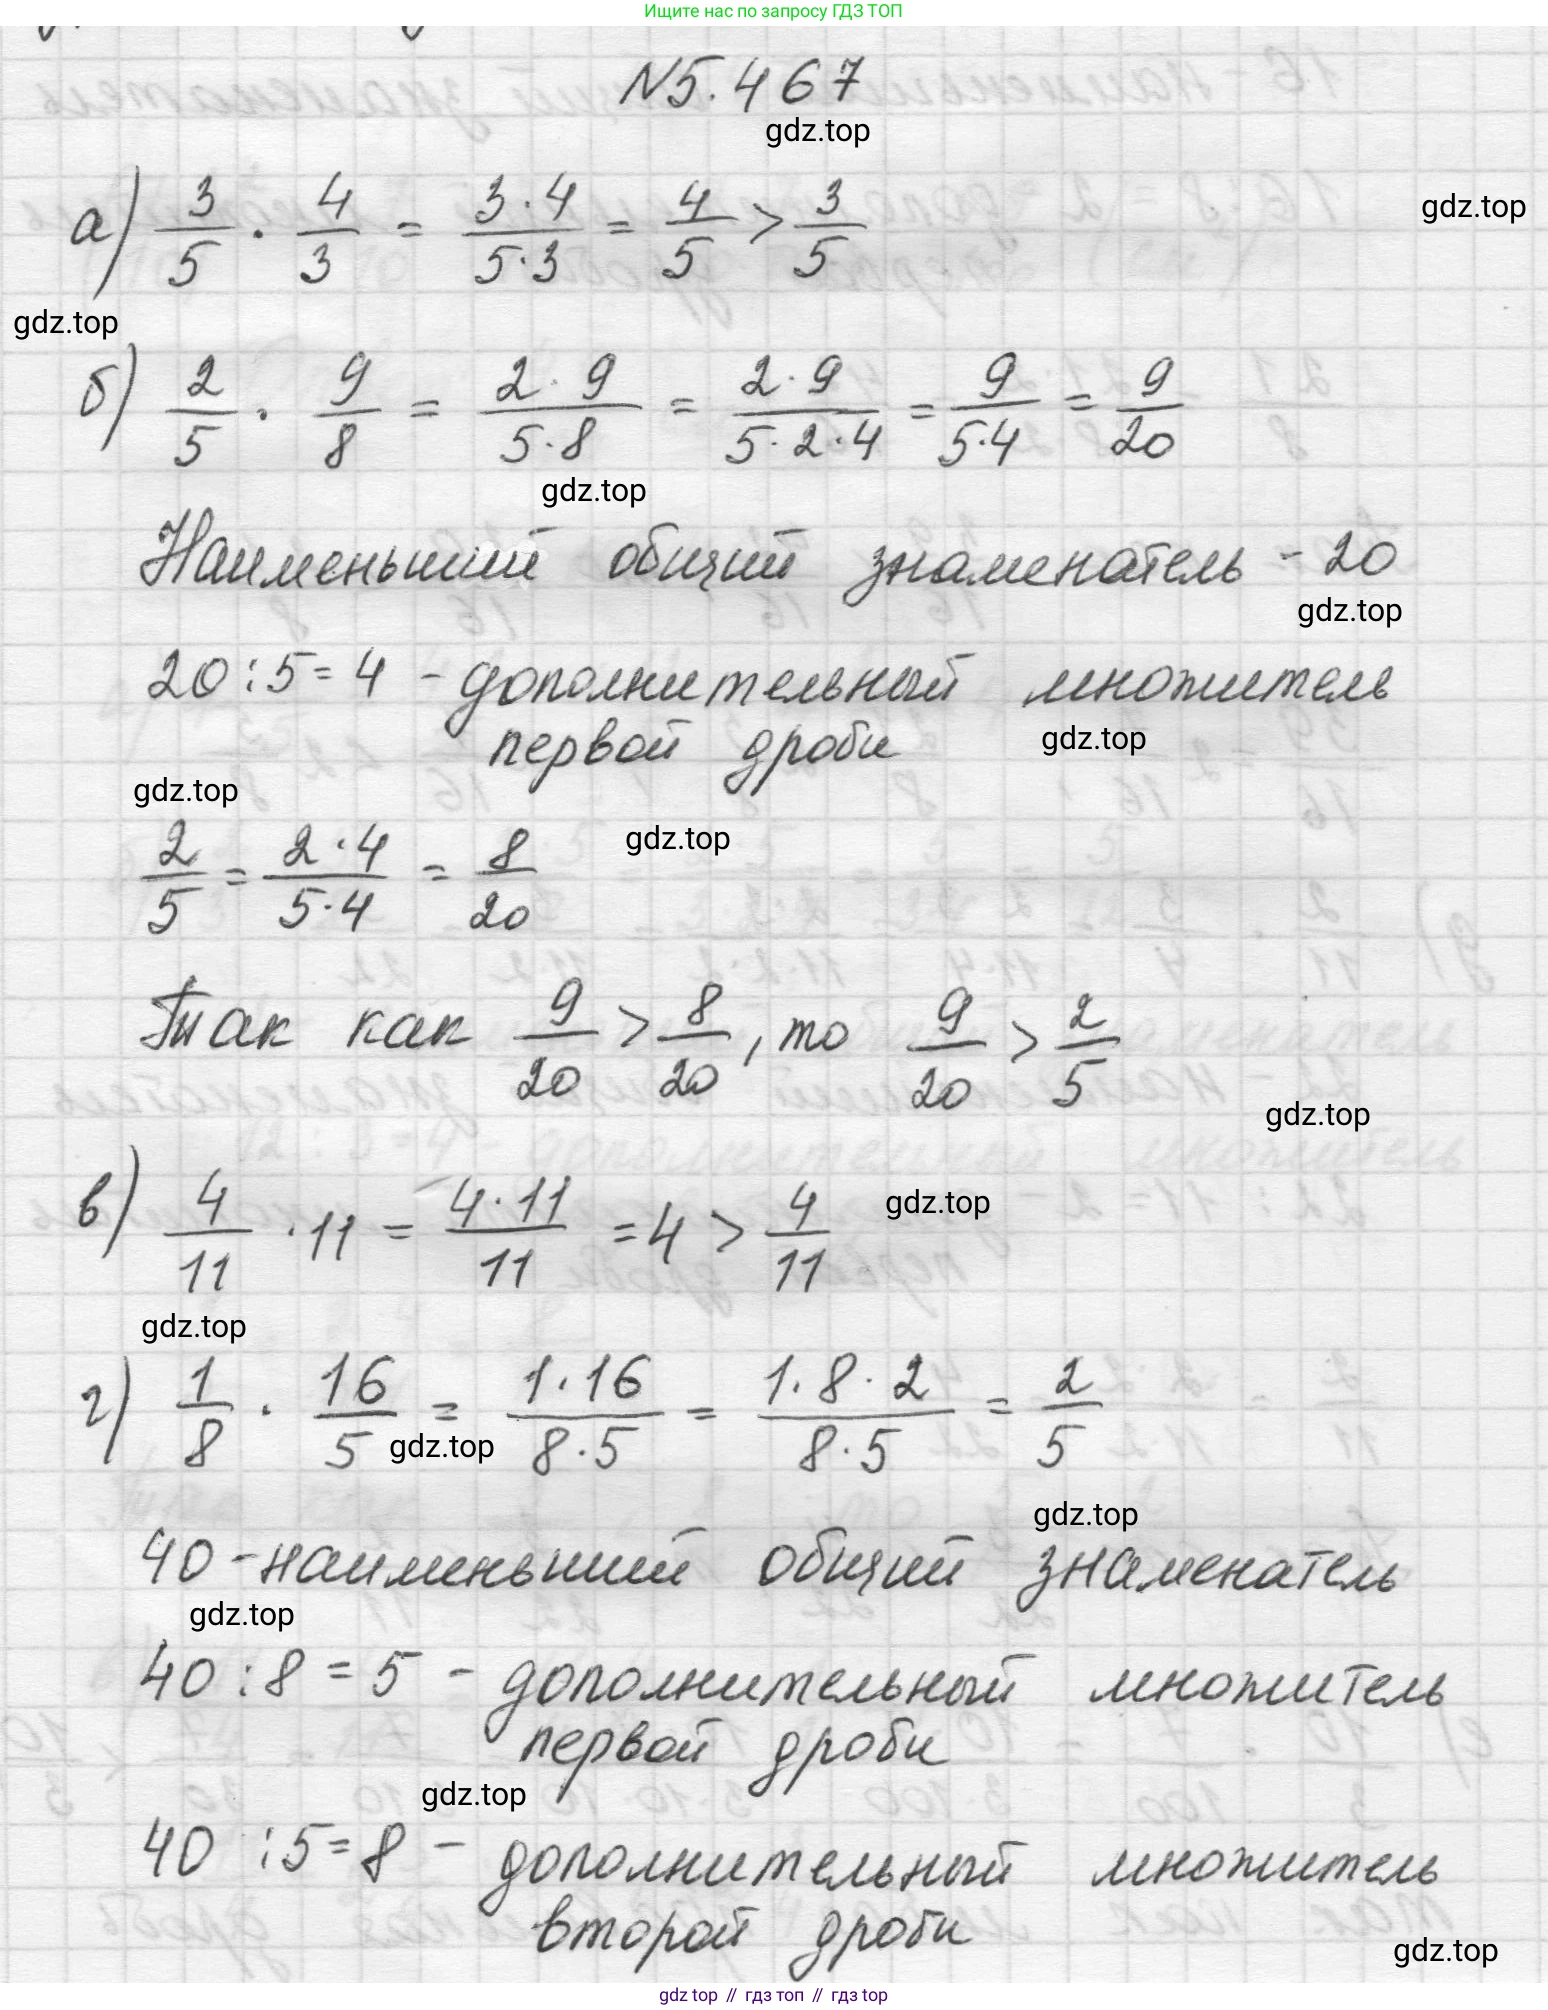 Ищите нас по запросу ГДЗ ТОП
№5.467
gdz.top
а) 3/5 · 4/3 = 3·4/5·3 = 4/5 > 3/5
gdz.top
gdz.top
б) 2/5 · 9/8 = 2·9/5·8 = 2·9/5·2·4 = 9/5·4 = 9/20
gdz.top
Наименьший общий знаменатель - 20
gdz.top
20:5=4 - дополнительный множитель
первой дроби
gdz.top
gdz.top
gdz.top
2/5 = 2·4/5·4 = 8/20
Так как 9/20 > 8/20, то 9/20 > 2/5
gdz.top
в) 4/11 · 11 = 4·11/11 = 4 > 4/11
gdz.top
gdz.top
г) 1/8 · 16/5 = 1·16/8·5 = 1·8·2/8·5 = 2/5
gdz.top
gdz.top
40 - наименьший общий знаменатель
gdz.top
40:8=5 - дополнительный множитель
первой дроби
gdz.top
40:5=8 - дополнительный множитель
второй дроби
gdz.top
gdz top // гдз топ // гдз top